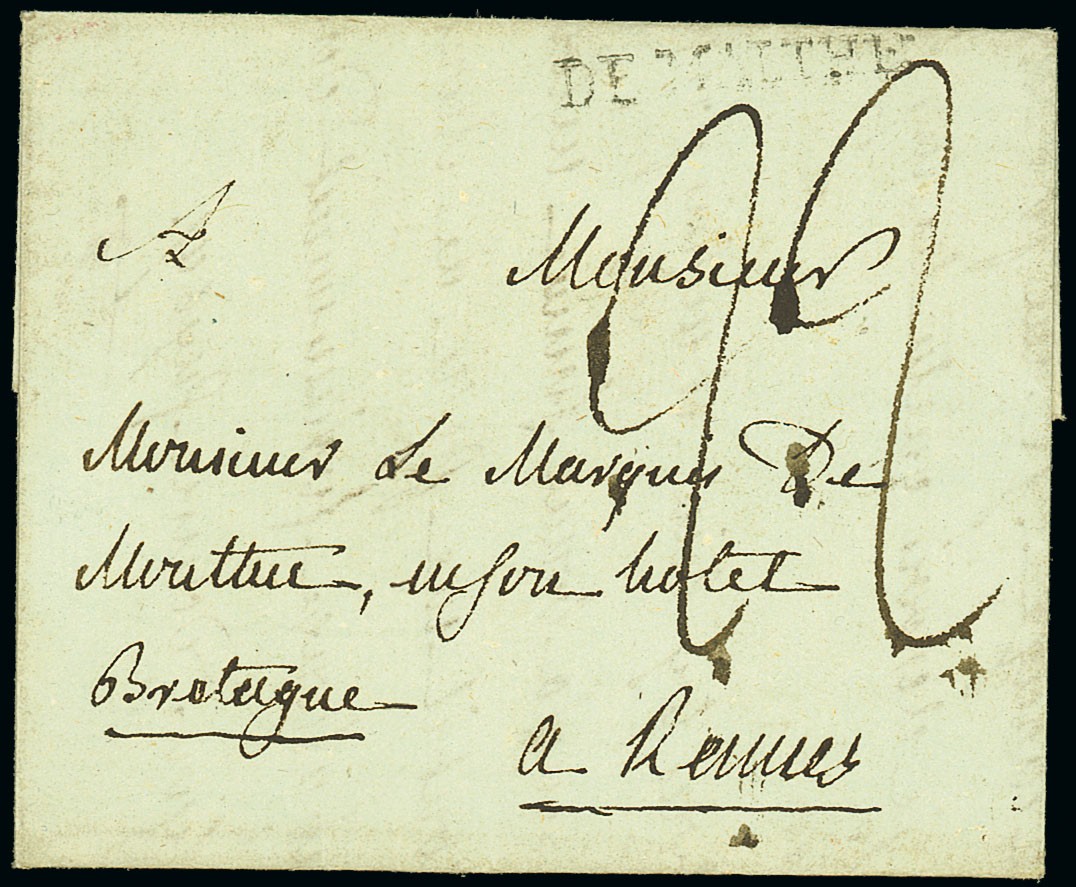 DE MALTHE
A Monsieur
22
Monsieur Le Marquis De
Montluc, en son hotel
Bretagne
a Rennes